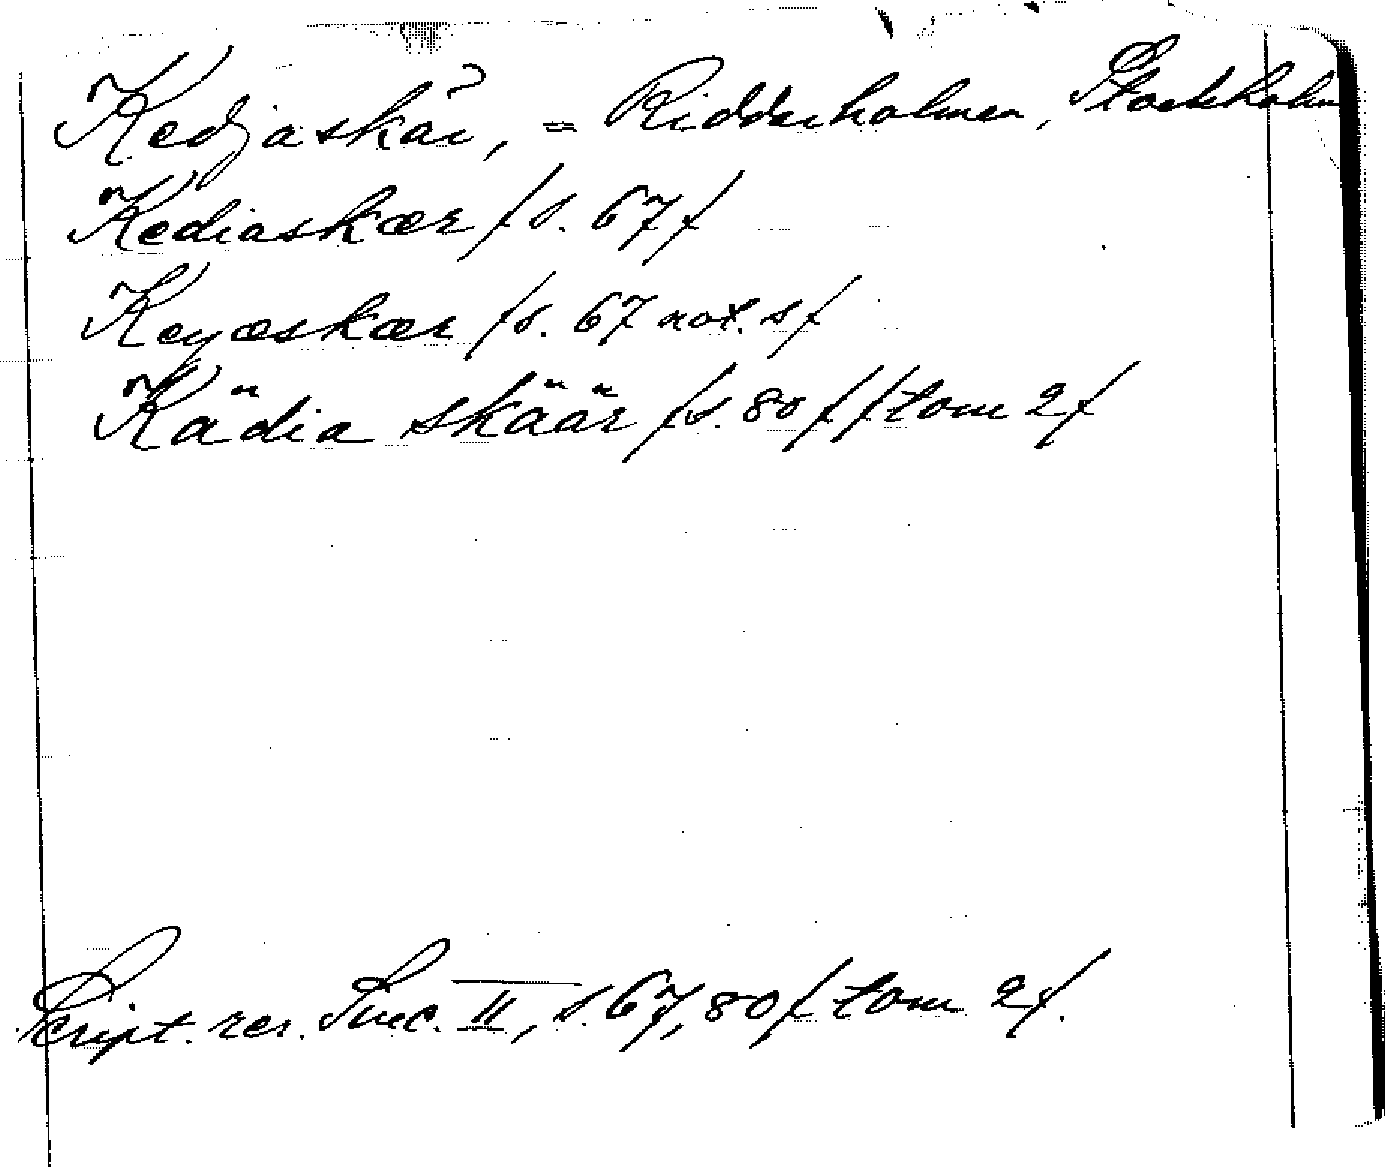 Kedjaskär, = Riddarholmen, Stockholm
Kediaskær /s. 67/
Keyæskær /s. 67 not. s/
Kädia skäär /s. 80/ /tom 2/
Script. rer. Suec. II, s. 67, 80 / tom 2/.